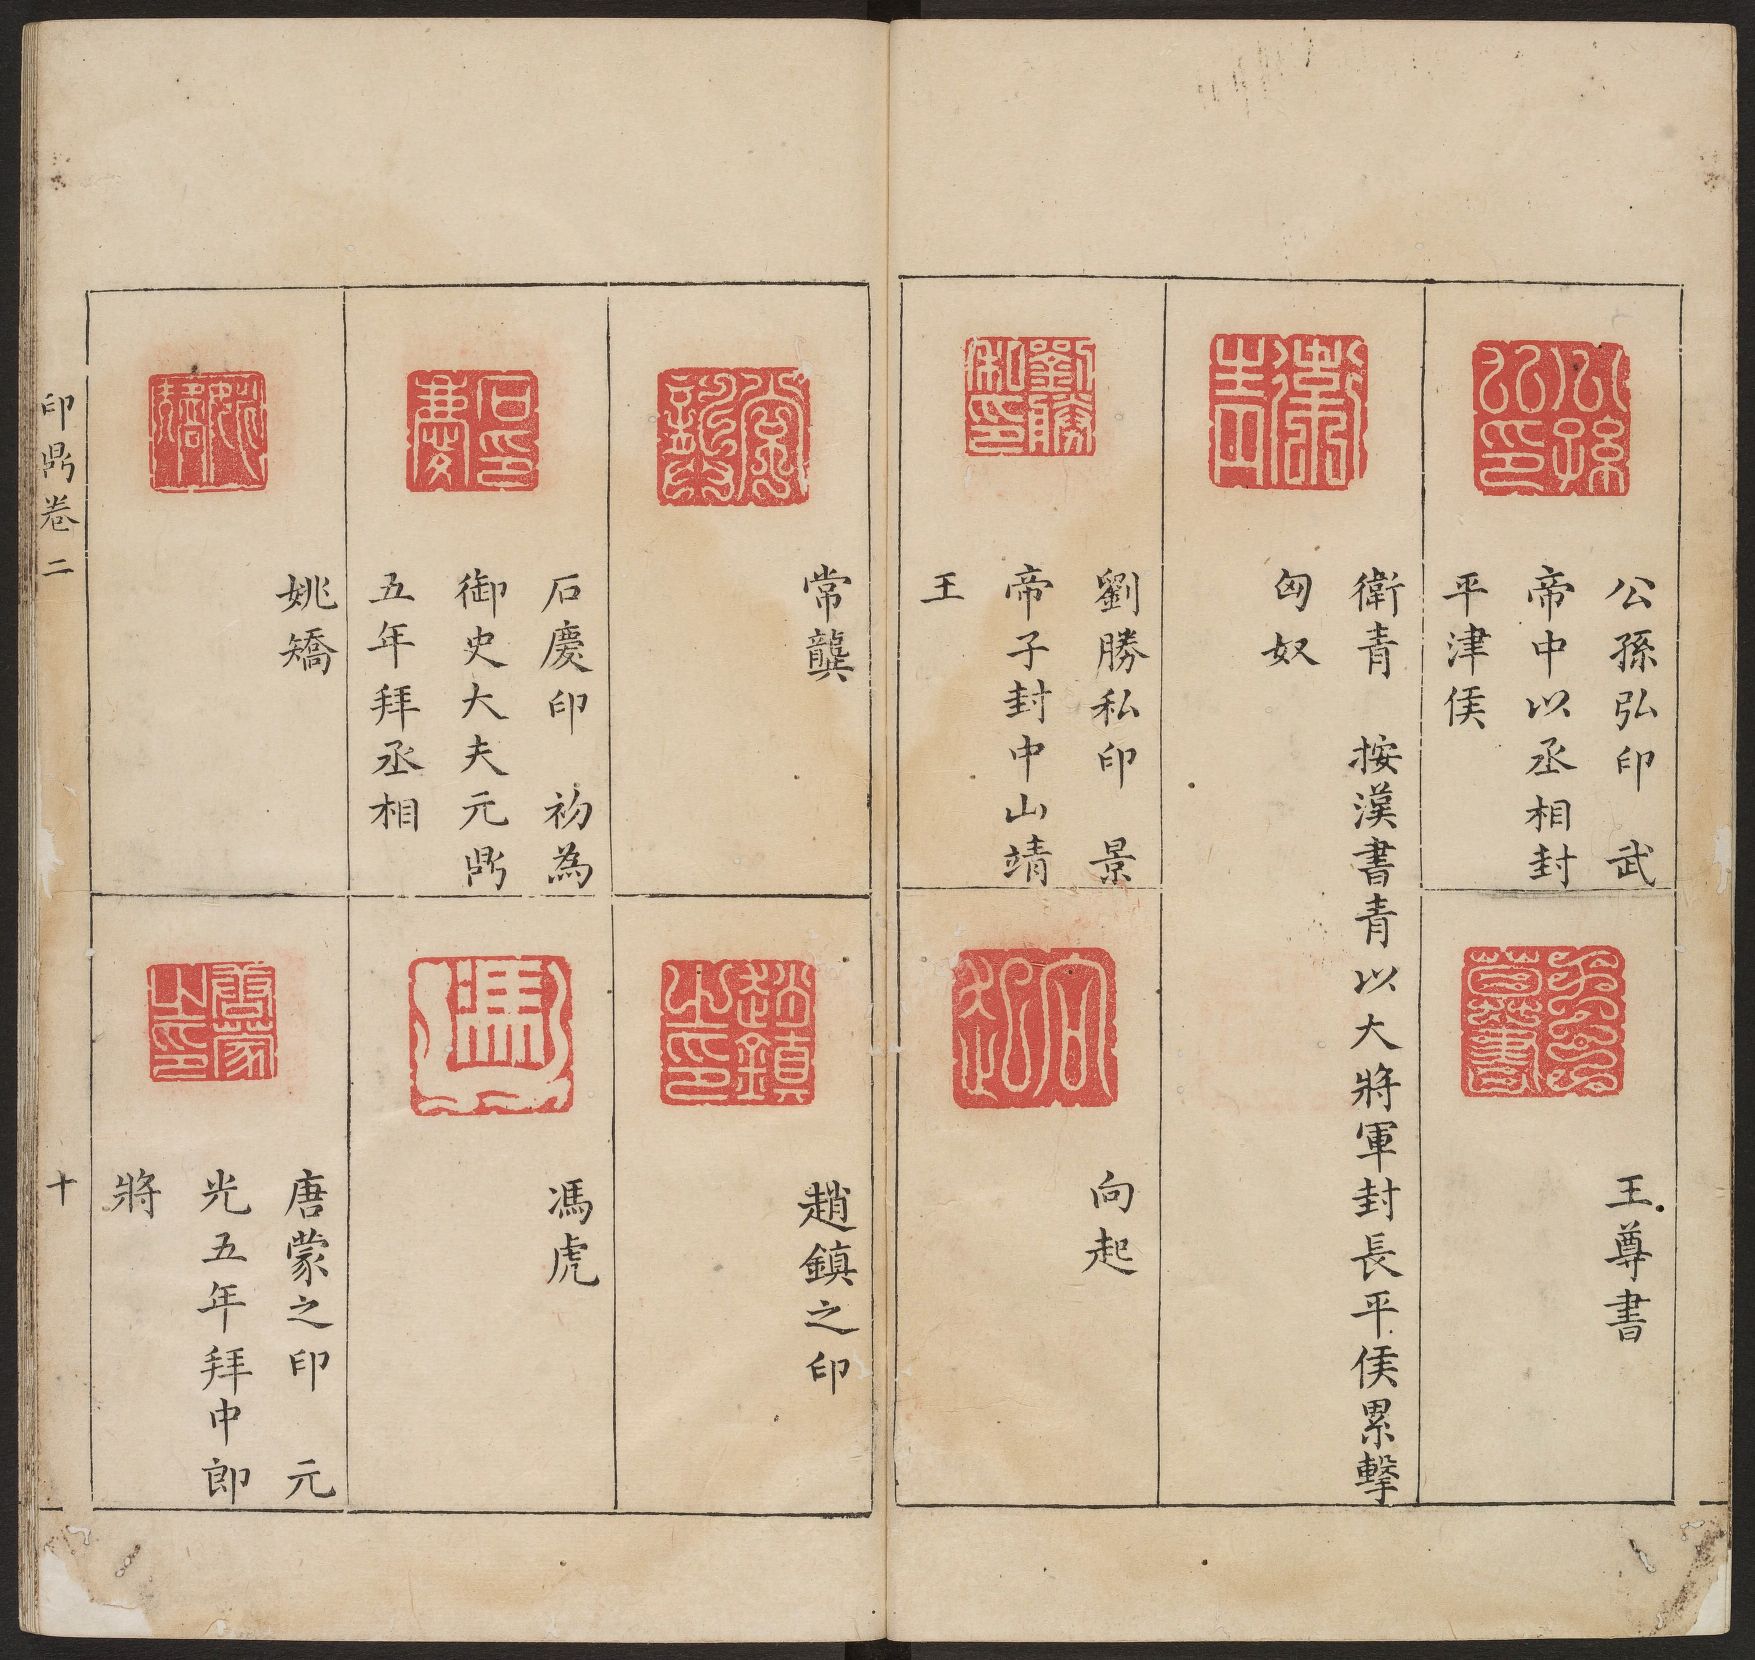 公孫弘印 武
帝中以丞相封
平津侯
王尊書
衛青 按漢書青以大將軍封長平侯累擊
匈奴
劉勝私印 景
帝子封中山靖
王
向起
常龔
趙鎮之印
石慶印 初為
御史大夫元鼎
五年拜丞相
馮虎
姚矯
唐蒙之印 元
光五年拜中郎
將
印鼎卷二
十